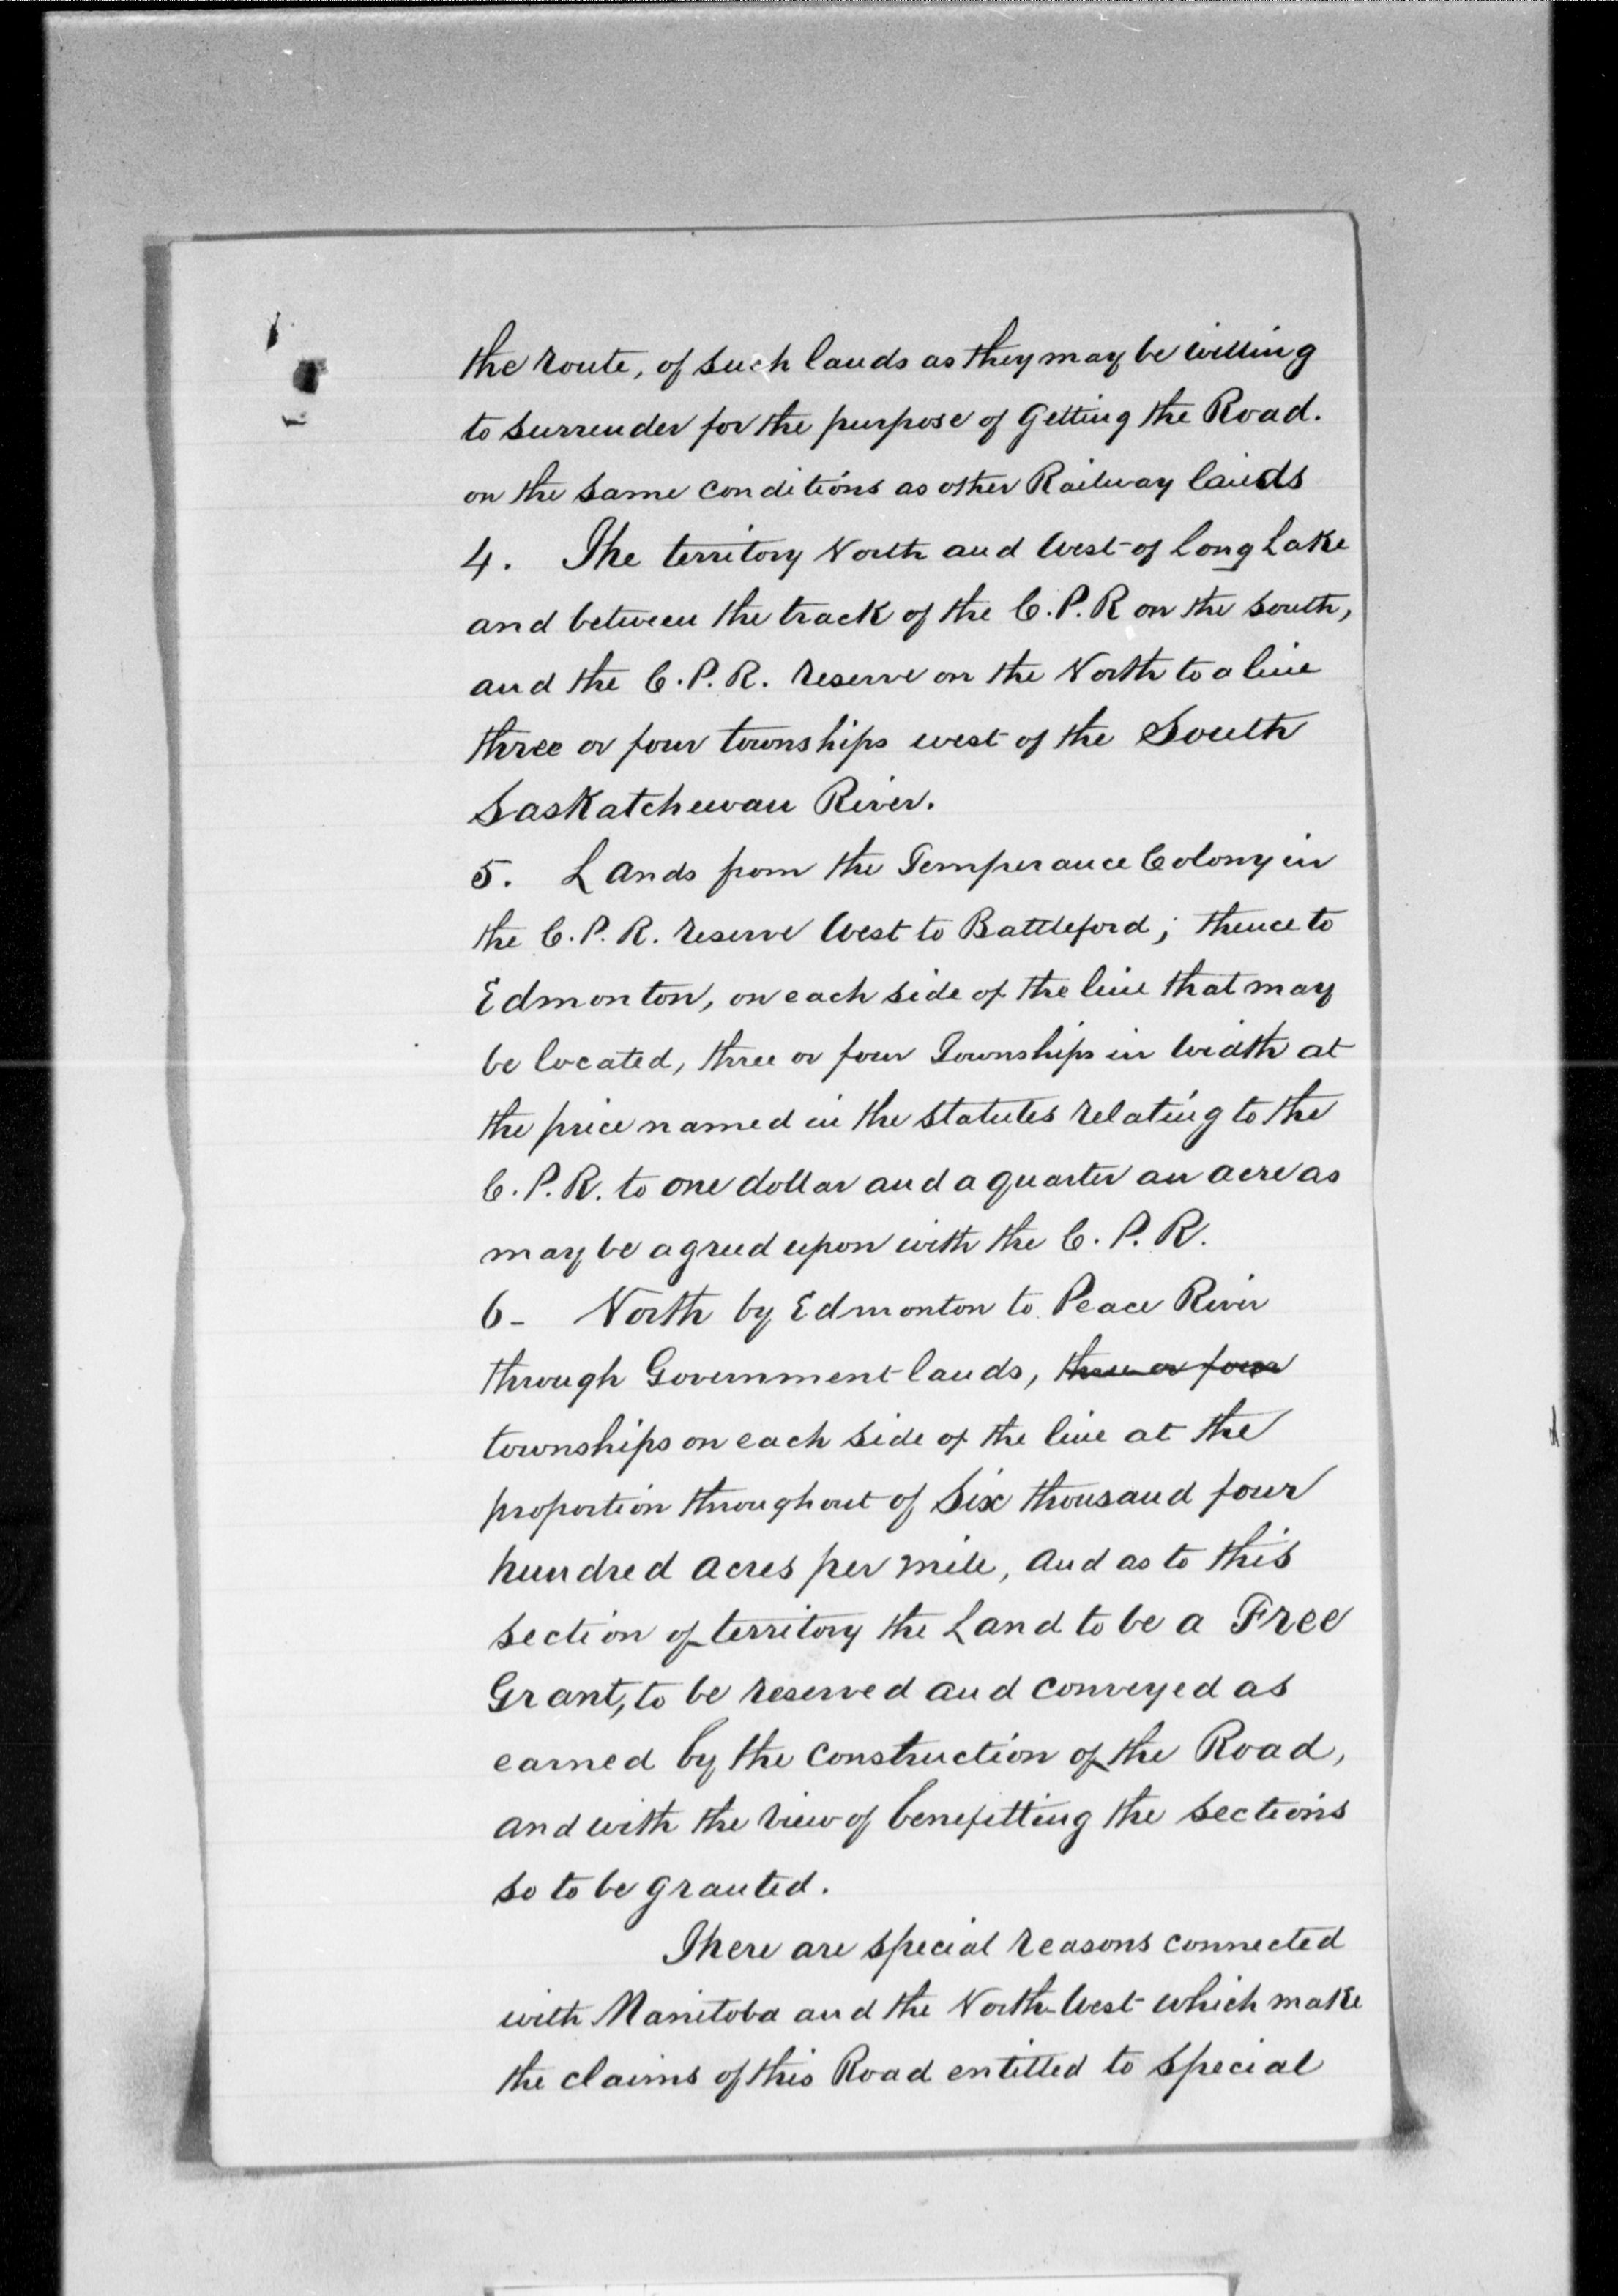 the route, of such lands as they may be willing
to surrender for the purpose of getting the Road.
on the same conditions as other Railway lands
4. The territory North and West of Long Lake
and between the track of the C.P.R on the south,
and the C.P.R. reserve on the North to a line
three or four townships west of the South
Saskatchewan River.
5. Lands from the Temperance Colony in
the C.P.R. reserve West to Battleford; thence to
Edmonton, on each side of the line that may
be located, three or four Townships in width at
the price named in the statutes relating to the
C.P.R. to one dollar and a quarter an acre as
may be agreed upon with the C.P.R.
6- North by Edmonton to Peace River
through Government lands, three or four
townships on each side of the line at the
proportion throughout of Six thousand four
hundred acres per mile, and as to this
section of territory the Land to be a Free
Grant, to be reserved and conveyed as
earned by the construction of the Road,
and with the view of benefitting the sections
so to be granted.
There are special reasons connected
with Manitoba and the North-West which make
the claims of this Road entitled to special